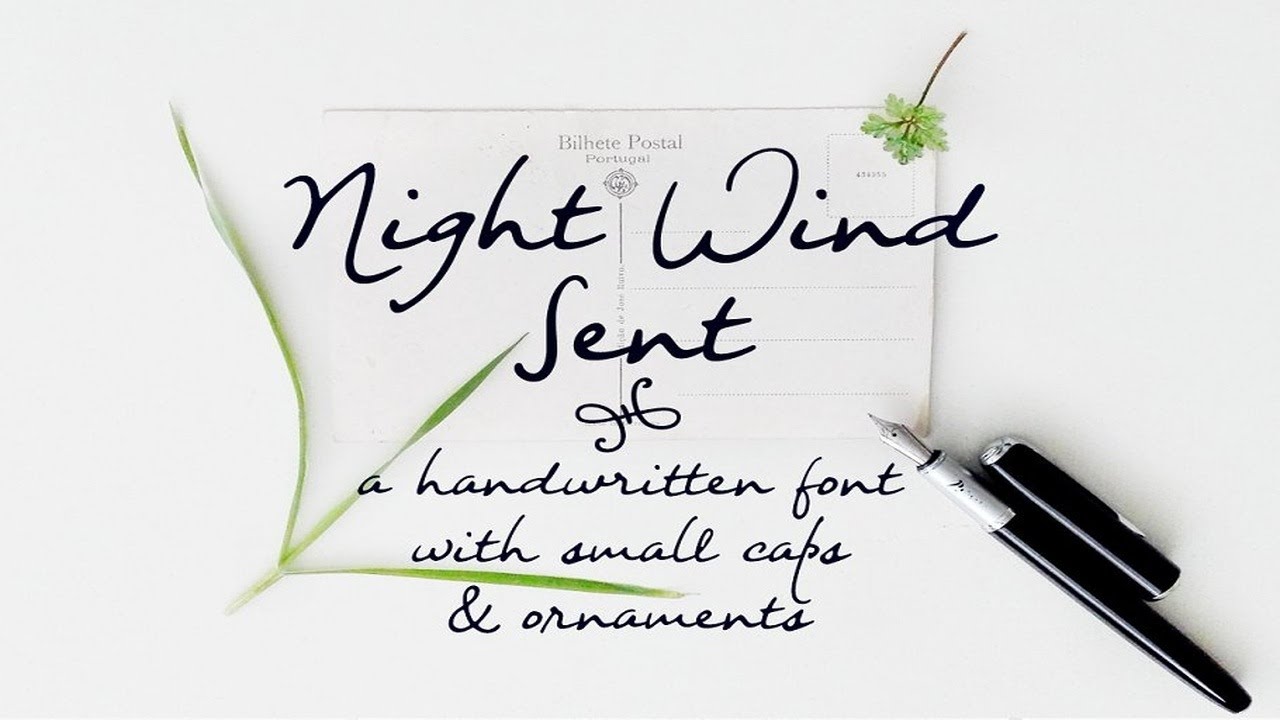 Bilhete Postal
Portugal
434355
Night Wind
Sent
a handwritten font
with small caps
& ornaments